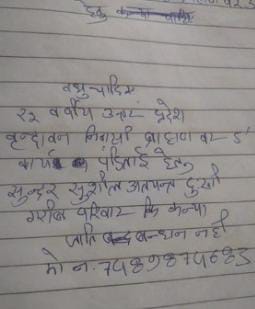 हेतु कन्या चाहिए
वधु चाहिए
२२ वर्षीय उत्तर प्रदेश
वृन्दावन निवासी ब्राह्मण वर 5'
कार्य पंडिताई हेतु
सुन्दर सुशील अत्यन्त दुखी
गरीब परिवार कि कन्या
जाति बन्धन नही
मो न. 7489874683